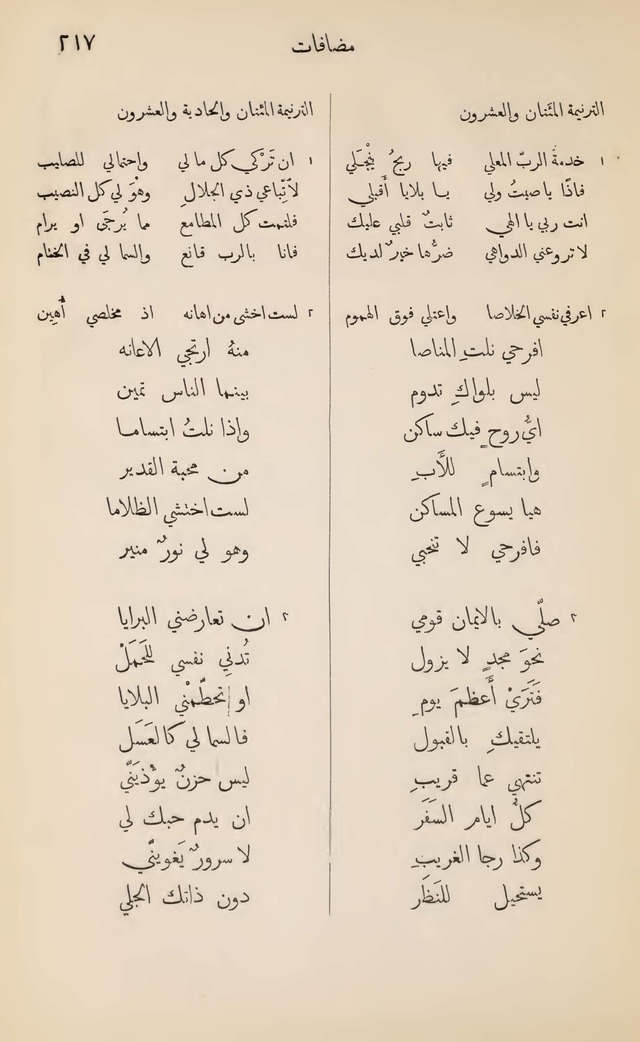 مضافات ٢١٧
الترنيمة المئتان والعشرون
١ خدمة الربّ المعلي فيها ربحٌ ينجلي
فاذًا يا صيتُ ولي يا بلايا أَقبلي
انت ربي يا الهي ثابتٌ قلبي عليك
لا تروعني الدواهي ضرُّها خيرٌ لديك
٢ اعرفي نفسي الخلاصا واعتلي فوق الهموم
افرحي نلتِ المناصا
ليس بلواكِ تدوم
ايُّ روحٍ فيك ساكن
وابتسامٍ للأَبِ
هيا يسوع المساكن
فافرحي لا تنحبي
٢ صلّي بالايمان قومي
نحوَ مجدٍ لا يزول
فَتَرَيْ أَعظمَ يومِ
يلتقيكِ بالقبول
تنتهي عما قريبِ
كلُّ ايام السَفَر
وكذا رجا الغريبِ
يستحيل للنَظَر
الترنيمة المئتان والحادية والعشرون
١ ان تَرْكي كل ما لي واحتمالي للصليب
لاتِّباعي ذي الجلالِ وهوَ لي كل النصيب
فلتمت كل المطامع مما يُرجَى او يرام
فانا بالرب قانع والسما لي في الختام
٢ لست اخشى من اهانه اذ مخلصي أُهين
منهُ ارتجي الاعانه
بينما الناس تمين
واذا نلتُ ابتساما
من محبة القدير
لست اختشي الظلاما
وهو لي نورٌ منير
٢ ان تعارضني البرايا
تُدنِي نفسي للحَمَلْ
او تحطّمْني البلايا
فالسما لي كالعَسَل
ليس حزنٌ يوْذيَنّي
ان يدم حبك لي
لا سرورٌ يَغوينّي
دون ذاتك الجلي